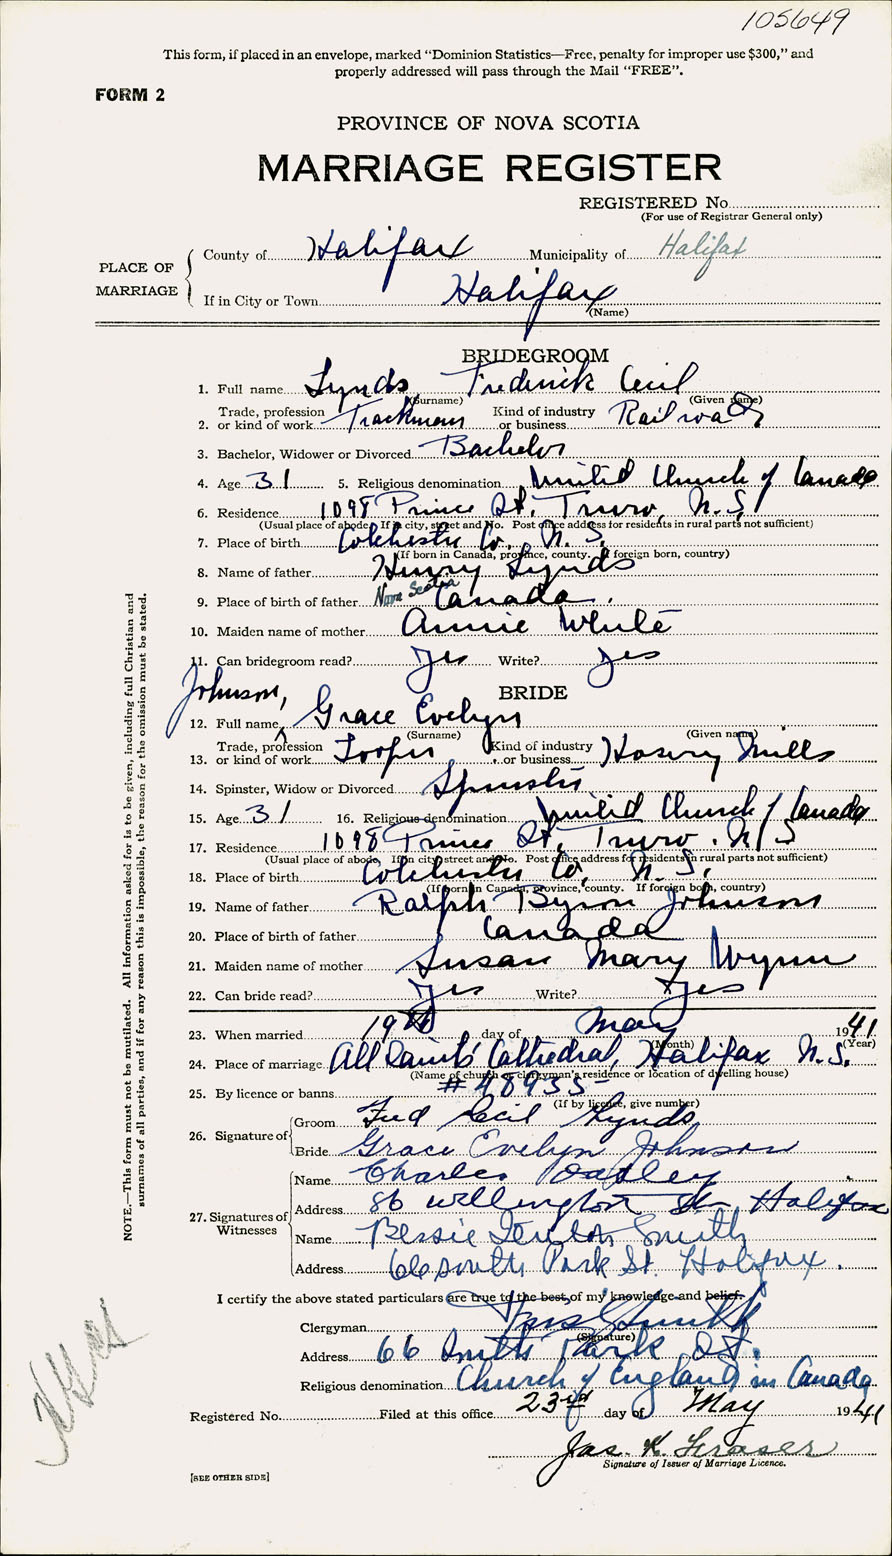 105649
This form, if placed in an envelope, marked "Dominion Statistics—Free, penalty for improper use $300," and
properly addressed will pass through the Mail "FREE".
FORM 2
PROVINCE OF NOVA SCOTIA
MARRIAGE REGISTER
REGISTERED No.
(For use of Registrar General only)
PLACE OF MARRIAGE
County of Halifax Municipality of Halifax
If in City or Town Halifax
(Name)
BRIDEGROOM
1. Full name Lynds Frederick Cecil
(Surname) (Given name)
2. Trade, profession or kind of work Trackman Kind of industry or business Railway
3. Bachelor, Widower or Divorced Bachelor
4. Age 31 5. Religious denomination United Church of Canada
6. Residence 1098 Prince St. Truro, N.S.
(Usual place of abode. If in city, street and No. Post office address for residents in rural parts not sufficient)
7. Place of birth Colchester Co., N.S.
(If born in Canada, province, county. If foreign born, country)
8. Name of father Henry Lynds
9. Place of birth of father Nova Scotia Canada.
10. Maiden name of mother Annie White
11. Can bridegroom read? Yes Write? Yes
BRIDE
Johnson,
12. Full name Grace Evelyn
(Surname) (Given name)
13. Trade, profession or kind of work Looper Kind of industry or business Hosiery Mills
14. Spinster, Widow or Divorced Spinster
15. Age 31 16. Religious denomination United Church of Canada
17. Residence 1098 Prince St, Truro, N.S
(Usual place of abode. If in city, street and No. Post office address for residents in rural parts not sufficient)
18. Place of birth Colchester Co, N.S.
(If born in Canada, province, county. If foreign born, country)
19. Name of father Ralph Byron Johnson
20. Place of birth of father Canada
21. Maiden name of mother Susan Mary Wynn
22. Can bride read? Yes Write? Yes
23. When married 19th day of May 1941
(Month) (Year)
24. Place of marriage All Saints' Cathedral, Halifax N.S.
(Name of church or clergyman's residence or location of dwelling house)
25. By licence or banns #48935
(If by licence, give number)
26. Signature of Groom Fred Cecil Lynds
Bride Grace Evelyn Johnson
27. Signatures of Witnesses Name Charles Oatley
Address 86 Wellington St. Halifax
Name Bessie Smith
Address 66 South Park St. Halifax.
I certify the above stated particulars are true to the best of my knowledge and belief.
Clergyman Smith
(Signature)
Address 66 South Park St.
Religious denomination Church of England in Canada
Registered No. Filed at this office 23rd day of May 1941
Jas. K. Fraser
Signature of Issuer of Marriage Licence.
[SEE OTHER SIDE]
NOTE.—This form must not be mutilated. All information asked for is to be given, including full Christian and
surnames of all parties, and if for any reason this is impossible, the reason for the omission must be stated.